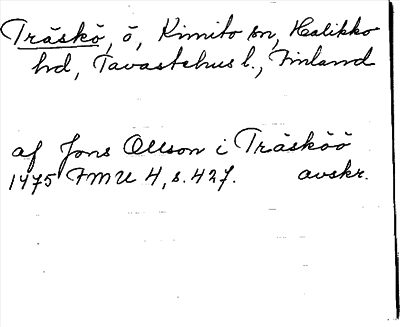 Träskö, ö, Kimito sn, Halikko
hd, Tavastehus l., Finland
af Jons Olson i Träsköö
1475 FMU 4, s. 427. avskr.